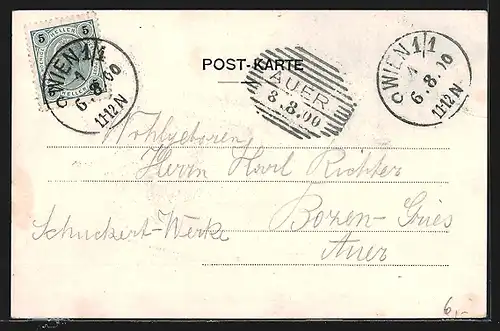 5 5
HELLER HELLER
WIEN 1/1
6.8.00
11-12N
C
POST-KARTE
AUER
8.8.00
WIEN 1/1
6.8.00
11-12N
C
Wohlgeboren
Herrn Karl Richter
Bozen-Gries
Schuckert-Werke
Auer
6,-